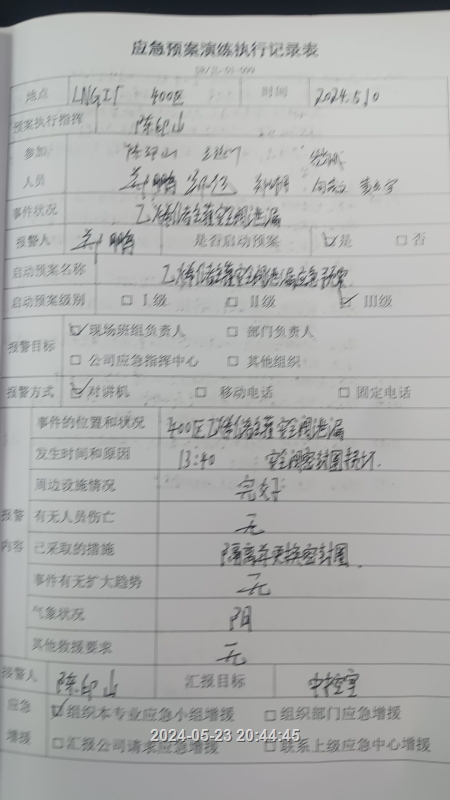 应急预案演练执行记录表
地点 400区 时间 2024.5.10
预案执行指挥 陈印山
参加 陈印山
人员
事件状况 乙烯储罐安全阀泄漏
报警人 是否启动预案 ☑是 □否
启动预案名称
启动预案级别 □Ⅰ级 □Ⅱ级 ☑Ⅲ级
报警目标 ☑现场班组负责人 □部门负责人
□公司应急指挥中心 □其他组织
报警方式 ☑对讲机 □移动电话 □固定电话
事件的位置和状况 400区乙烯储罐安全阀泄漏
发生时间和原因 13:40 安全阀密封圈损坏.
周边设施情况 完好
报警 有无人员伤亡 无
内容 已采取的措施 隔离并更换密封圈.
事件有无扩大趋势 无
气象状况 阴
其他救援要求 无
报警人 陈印山 汇报目标 中控室
应急 ☑组织本专业应急小组增援 □组织部门应急增援
增援 □汇报公司请求应急增援 □联系上级应急中心增援
2024-05-23 20:44:45